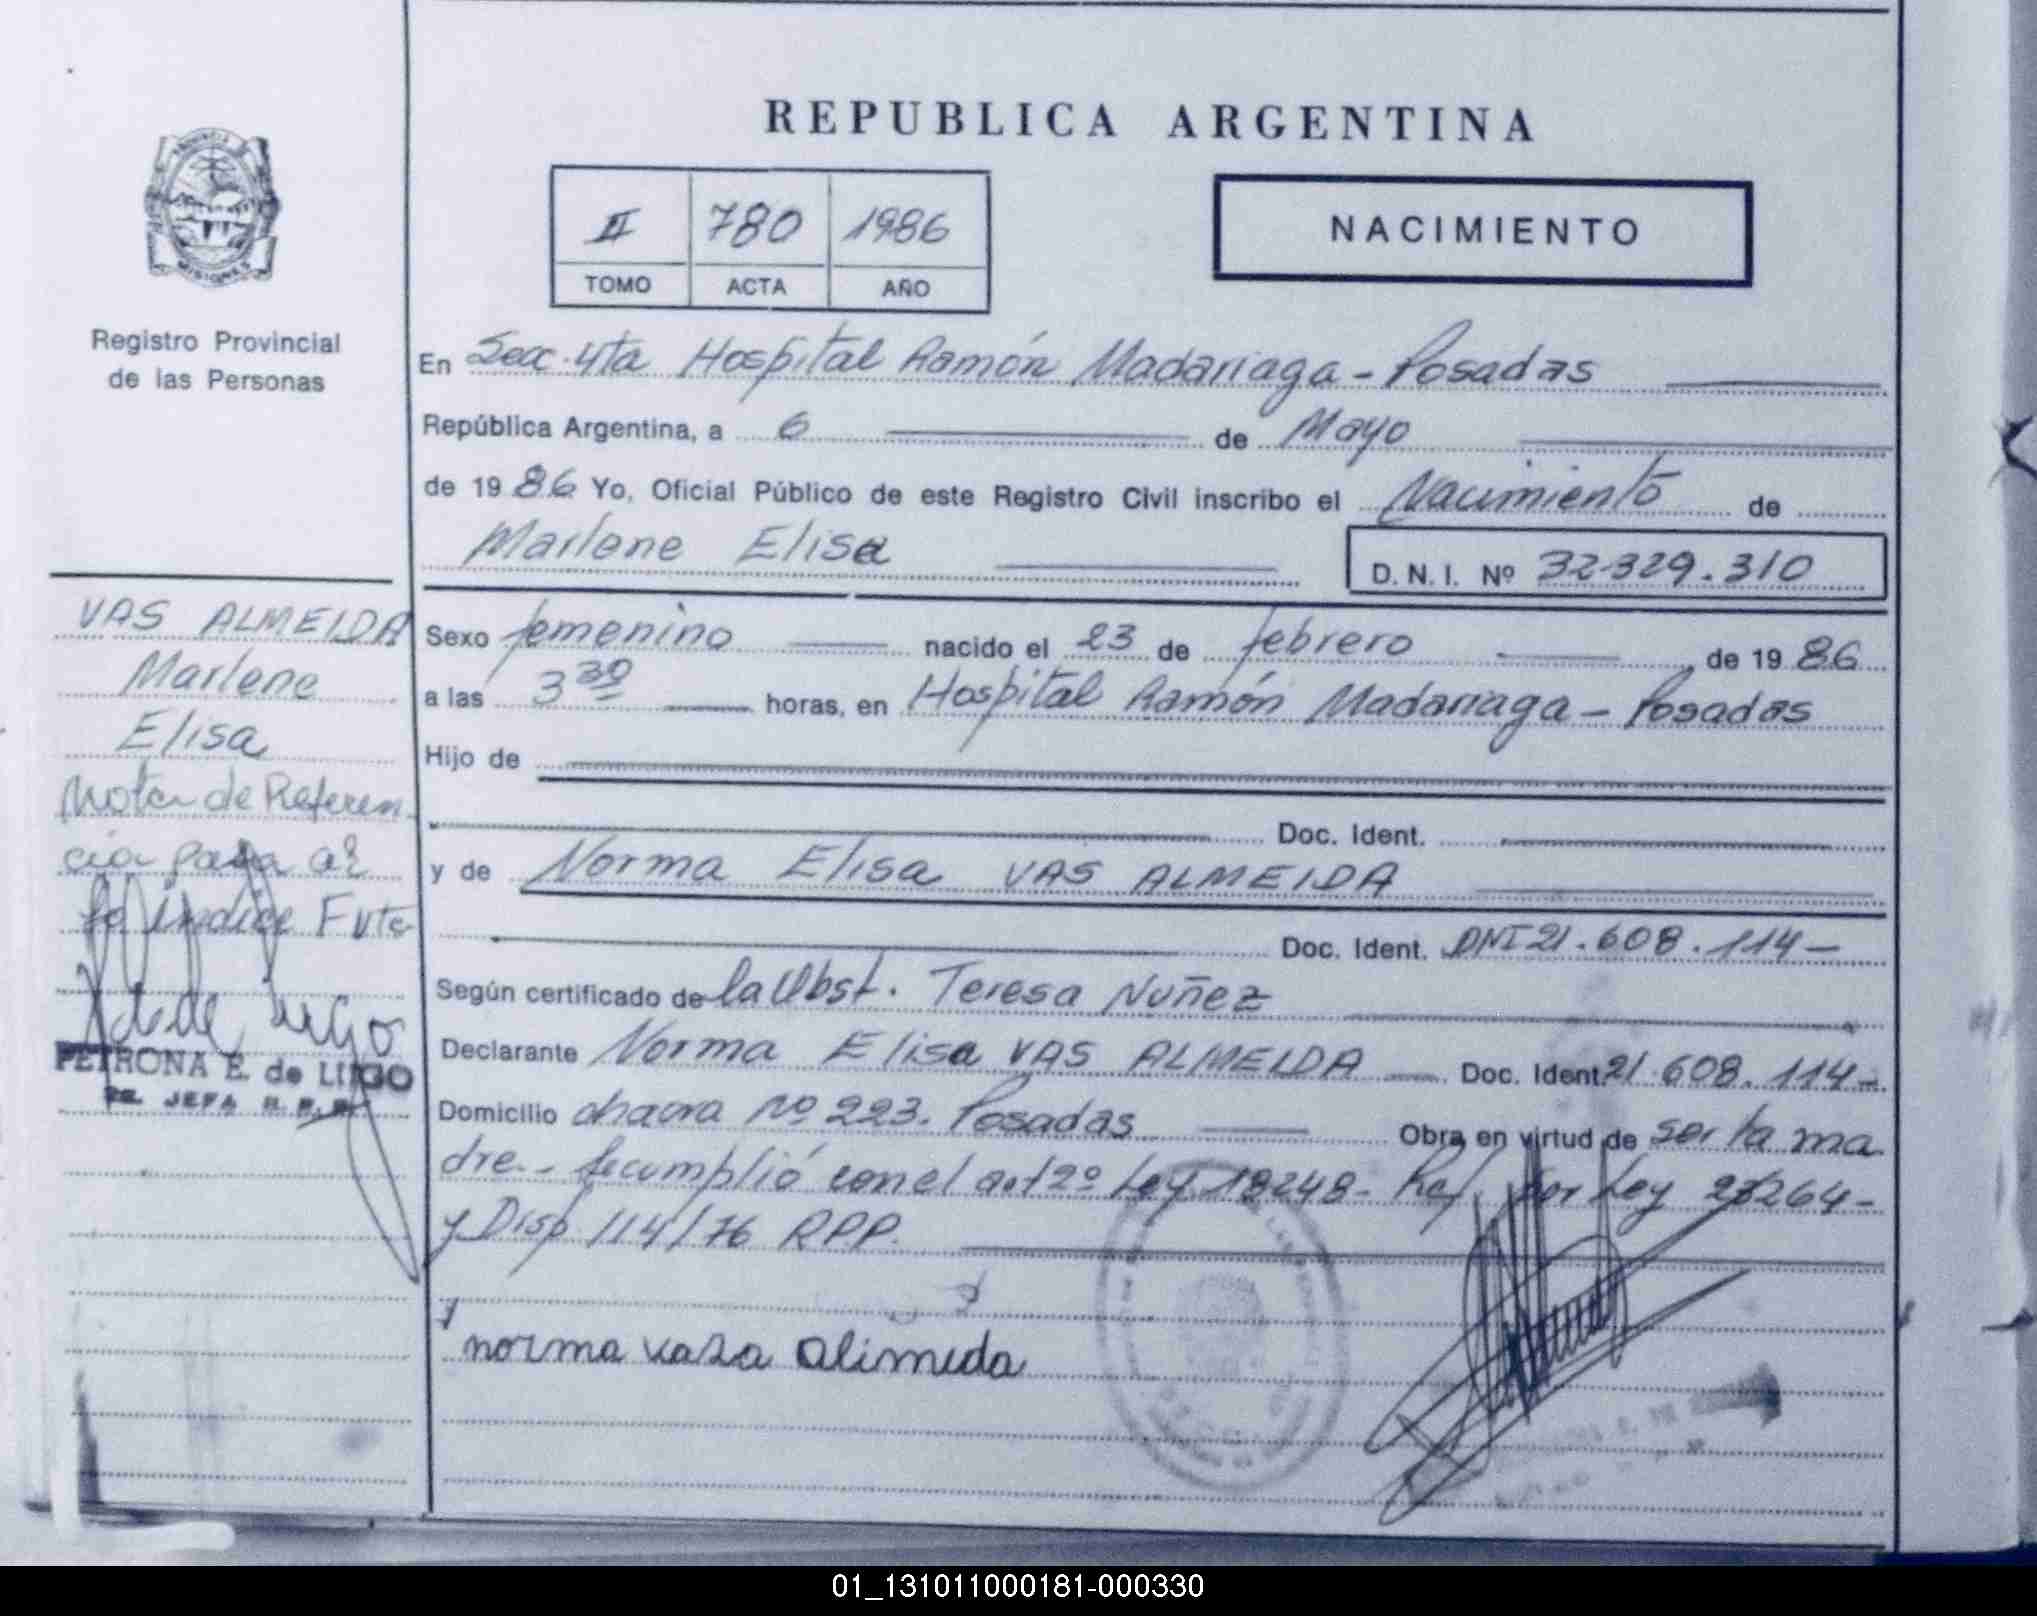 REPUBLICA ARGENTINA
PROVINCIA DE
MISIONES
Registro Provincial
de las Personas
II 780 1986
TOMO ACTA AÑO
NACIMIENTO
En Secc. 4ta Hospital Ramón Madariaga - Posadas
República Argentina, a 6 de Mayo
de 1986 Yo, Oficial Público de este Registro Civil inscribo el Nacimiento de
Marlene Elisa
D. N. I. Nº 32.329.310
VAS ALMEIDA
Marlene
Elisa
Nota de Referen
cia pasa al
índice
PETRONA E. de LUGO
JEFA
Sexo femenino nacido el 23 de febrero de 1986
a las 3 30 horas, en Hospital Ramón Madariaga - Posadas
Hijo de
Doc. Ident.
y de Norma Elisa VAS ALMEIDA
Doc. Ident. DNI 21.608.114-
Según certificado de la Obst. Teresa Nuñez
Declarante Norma Elisa VAS ALMEIDA Doc. Ident. 21.608.114-
Domicilio chacra nº 223. Posadas Obra en virtud de ser la ma
dre.- Se cumplió con el art 2º Ley 18248- Ref. por Ley 23264-
y Disp 114/76 RPP.
norma vaza alimeda
01_131011000181-000330